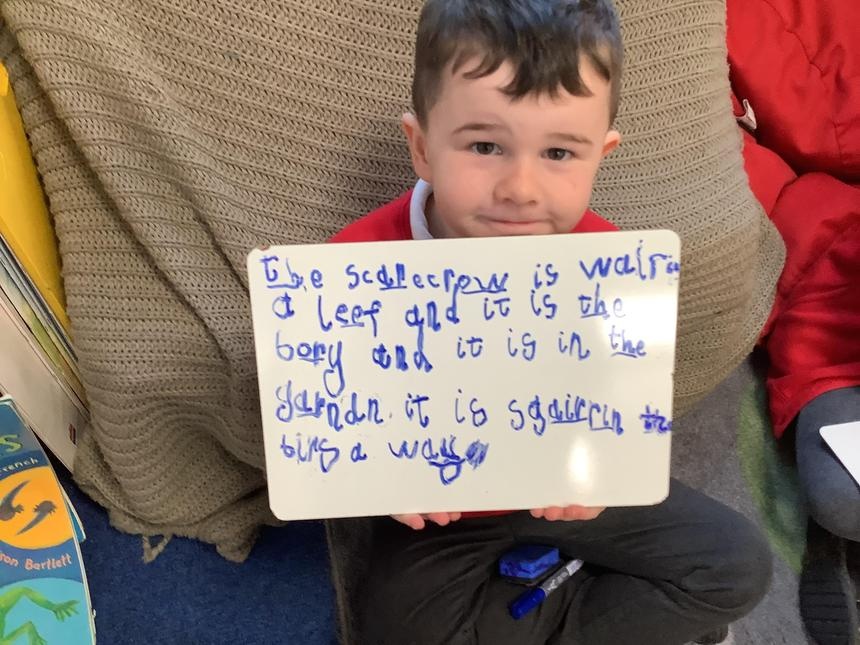 the scarecrow is wair
a leef and it is the
bory and it is in the
garndn. it is sgairrin the
birg a way
French
son Bartlett